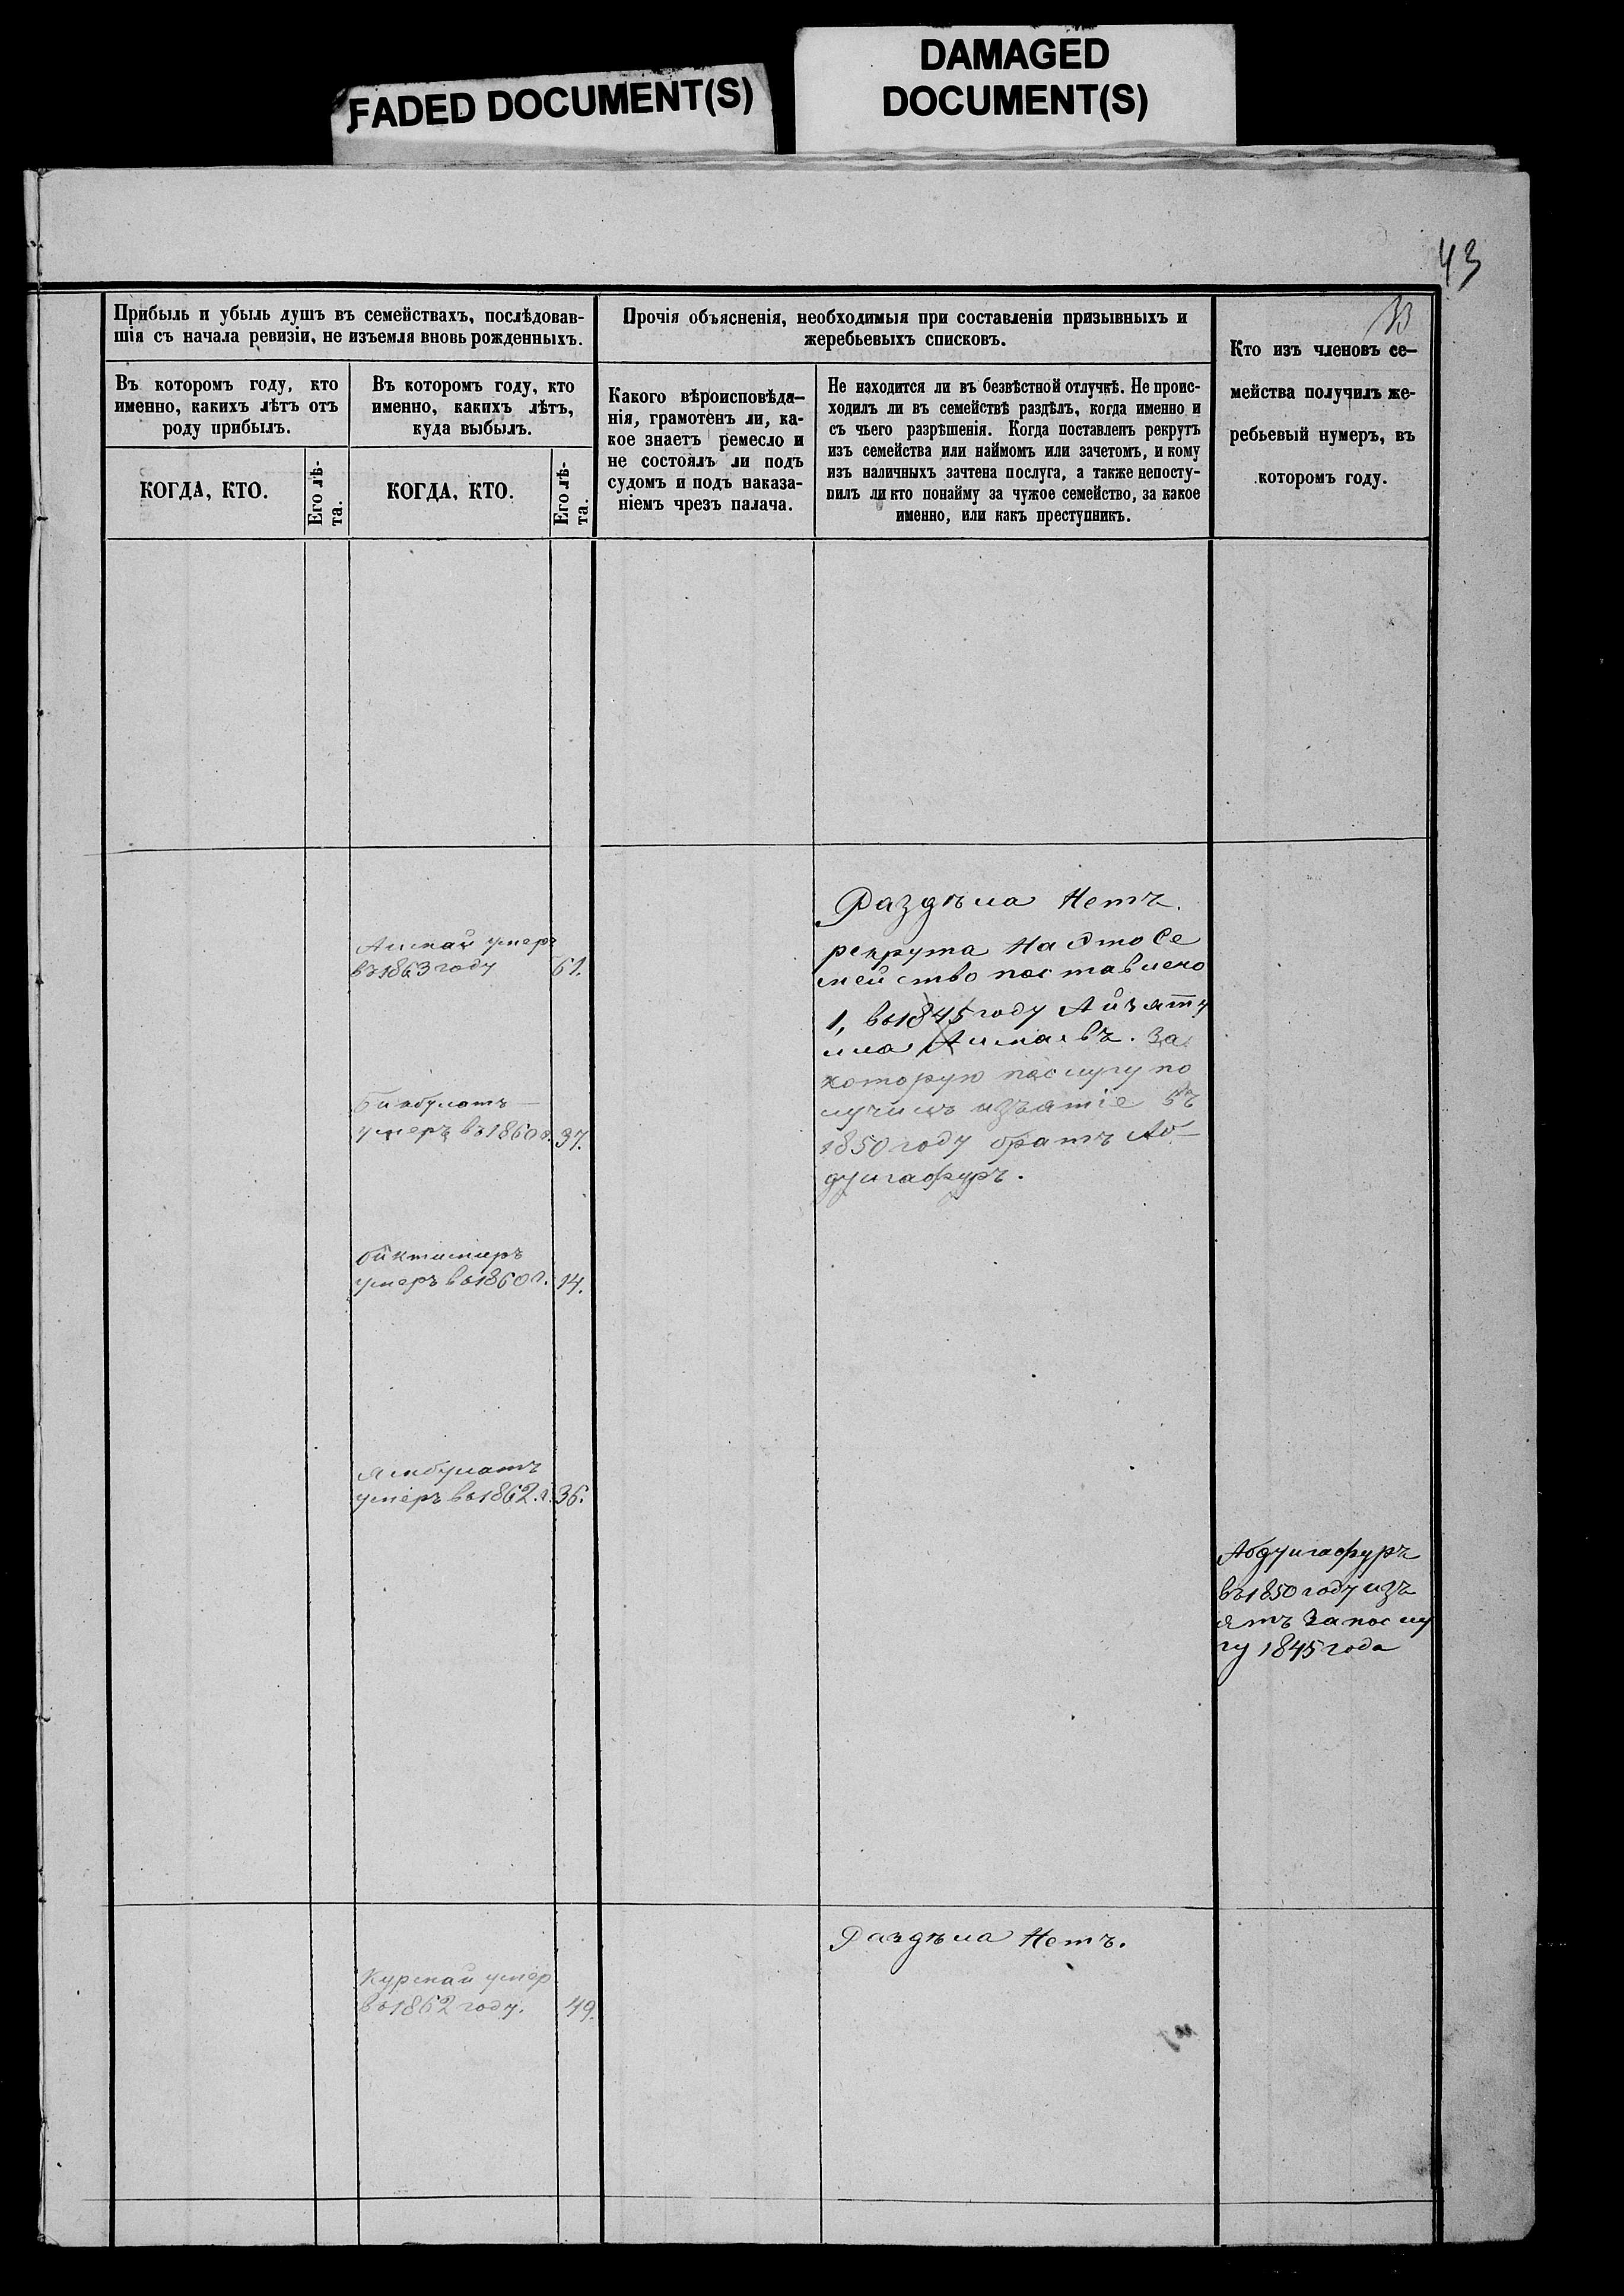 FADED DOCUMENT(S)
DAMAGED
DOCUMENT(S)
43
Прибыль и убыль душъ въ семействахъ, послѣдовав-
шія съ начала ревизіи, не изъемля вновь рожденныхъ.
Въ которомъ году, кто
именно, какихъ лѣтъ отъ
роду прибылъ.
Въ которомъ году, кто
именно, какихъ лѣтъ,
куда выбылъ.
КОГДА, КТО.
Его лѣ-
та.
КОГДА, КТО.
Его лѣ-
та.
Прочія объясненія, необходимыя при составленіи призывныхъ и
жеребьевыхъ списковъ.
Какого вѣроисповѣда-
нія, грамотенъ ли, ка-
кое знаетъ ремесло и
не состоялъ ли подъ
судомъ и подъ наказа-
ніемъ чрезъ палача.
Не находится ли въ безвѣстной отлучкѣ. Не проис-
ходилъ ли въ семействѣ раздѣлъ, когда именно и
съ чьего разрѣшенія. Когда поставленъ рекрутъ
изъ семейства или наймомъ или зачетомъ, и кому
изъ наличныхъ зачтена послуга, а также непосту-
пилъ ли кто понайму за чужое семейство, за какое
именно, или какъ преступникъ.
Кто изъ членовъ се-
мейства получилъ же-
ребьевый нумеръ, въ
которомъ году.
умеръ
въ 1863 году 61.
умеръ въ 1860 г. 37.
умеръ въ 1860 г. 14.
Ямбулатъ
умеръ въ 1862. г. 36.
Раздѣла Нетъ.
рекрута На Это Се
мейство поставлено
1, въ 1845 году
За
которую послугу по
лучилъ изъятіе въ
1850 году братъ Аб-
дулгафуръ.
Абдулгафуръ
въ 1850 году изъ
ятъ За послу
гу 1845 года
Раздѣла Нетъ.
умеръ
въ 1862 году. 49.